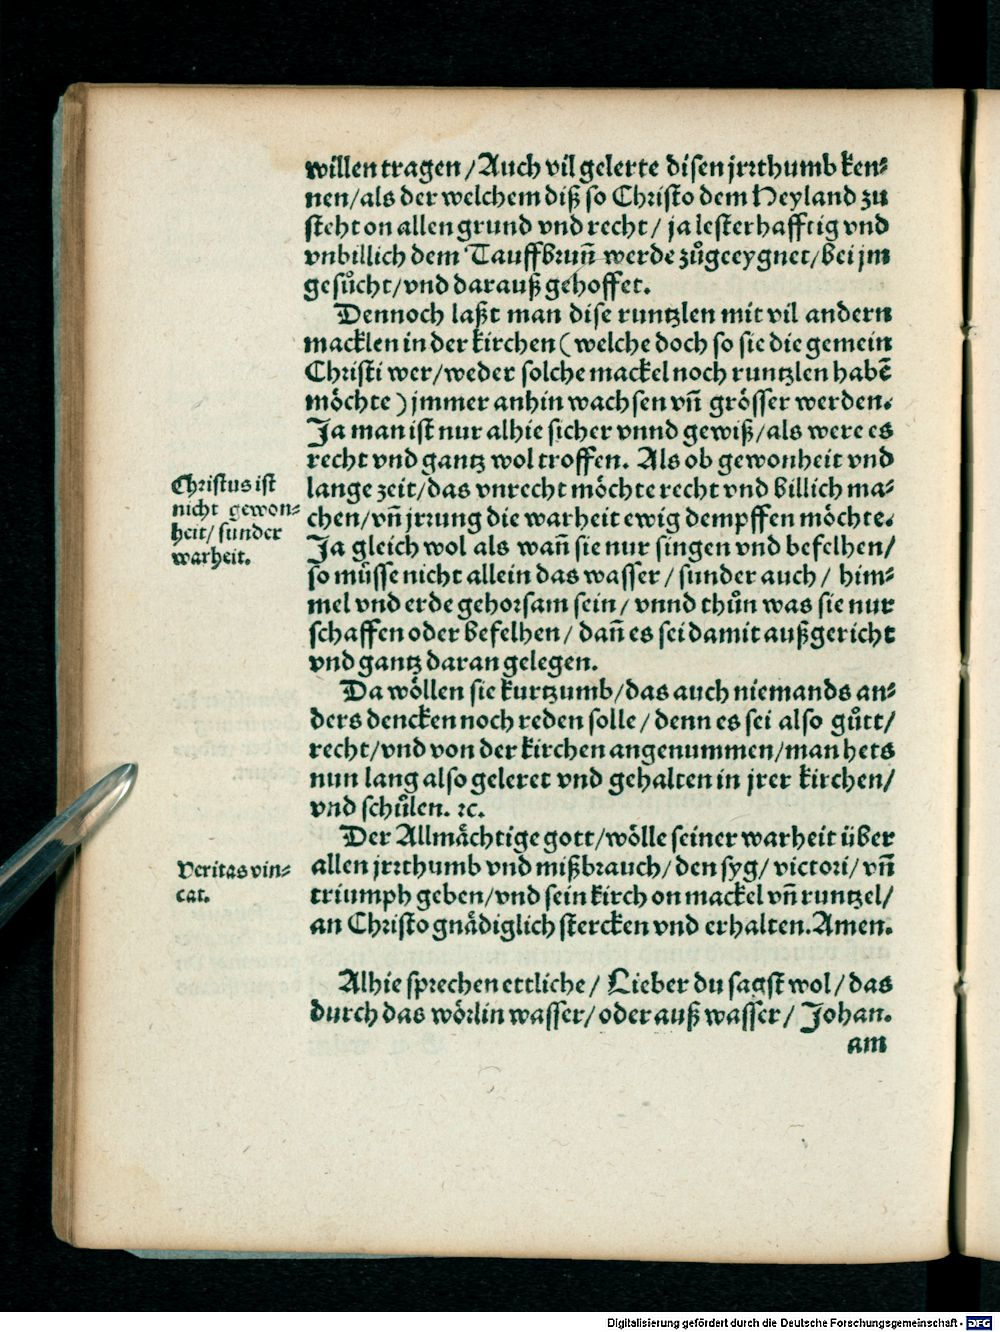 willen tragen / Auch vil gelerte disen jrrthumb ken⸗
nen / als der welchem diß so Christo dem Heyland zu
steht on allen grund vnd recht / ja lesterhafftig vnd
vnbillich dem Tauffbrun̄ werde zůgeeygnet / bei jm
gesůcht / vnd darauß gehoffet.
Dennoch laßt man dise runtzlen mit vil andern
macklen in der kirchen ( welche doch so sie die gemein
Christi wer / weder solche mackel noch runtzlen habē
möchte ) jmmer anhin wachsen vn̄ grösser werden.
Ja man ist nur alhie sicher vnnd gewiß / als were es
recht vnd gantz wol troffen. Als ob gewonheit vnd
Christus ist
nicht gewon⸗
heit / sunder
warheit.
lange zeit / das vnrecht möchte recht vnd billich ma⸗
chen / vn̄ jrrung die warheit ewig dempffen möchte.
Ja gleich wol als wan̄ sie nur singen vnd befelhen /
so müsse nicht allein das wasser / sunder auch / him⸗
mel vnd erde gehorsam sein / vnnd thůn was sie nur
schaffen oder befelhen / dan̄ es sei damit außgericht
vnd gantz daran gelegen.
Da wöllen sie kurtzumb / das auch niemands an⸗
ders dencken noch reden solle / denn es sei also gůtt /
recht / vnd von der kirchen angenummen / man hets
nun lang also geleret vnd gehalten in jrer kirchen /
vnd schůlen. ꝛc.
Der Allmächtige gott / wölle seiner warheit über
allen jrrthumb vnd mißbrauch / den syg / victori / vn̄
Veritas vin⸗
cat.
triumph geben / vnd sein kirch on mackel vn̄ runtzel /
an Christo gnädiglich stercken vnd erhalten. Amen.
Alhie sprechen ettliche / Lieber du sagst wol / das
durch das wörlin wasser / oder auß wasser / Johan.
am
Digitalisierung gefördert durch die Deutsche Forschungsgemeinschaft - DFG